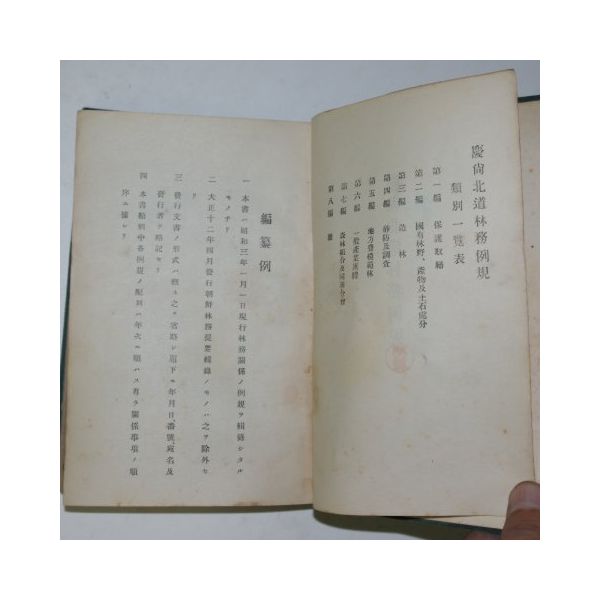 慶尙北道林務例規
類別一覽表
第一編 保護取締
第二編 國有林野、產物及土石處分
第三編 造林
第四編 砂防及調査
第五編 地方費模範林
第六編 一般產業團體
第七編 森林組合及同連合會
第八編 雜
編纂例
一 本書ハ昭和三年一月一日現行林務關係ノ例規ヲ輯錄シタル
モノナリ
二 大正十二年四月發行朝鮮林務提要輯錄ノモノハ之ヲ除外セ
リ
三 發行文書ノ形式ハ總テ之ヲ省略シ題下ニ年月日、番號、宛名及
發行者ヲ略記セリ
四 本書類別中各例規ノ配列ハ年次ニ順ハス有ラ關係事項ノ順
序ニ據レリ